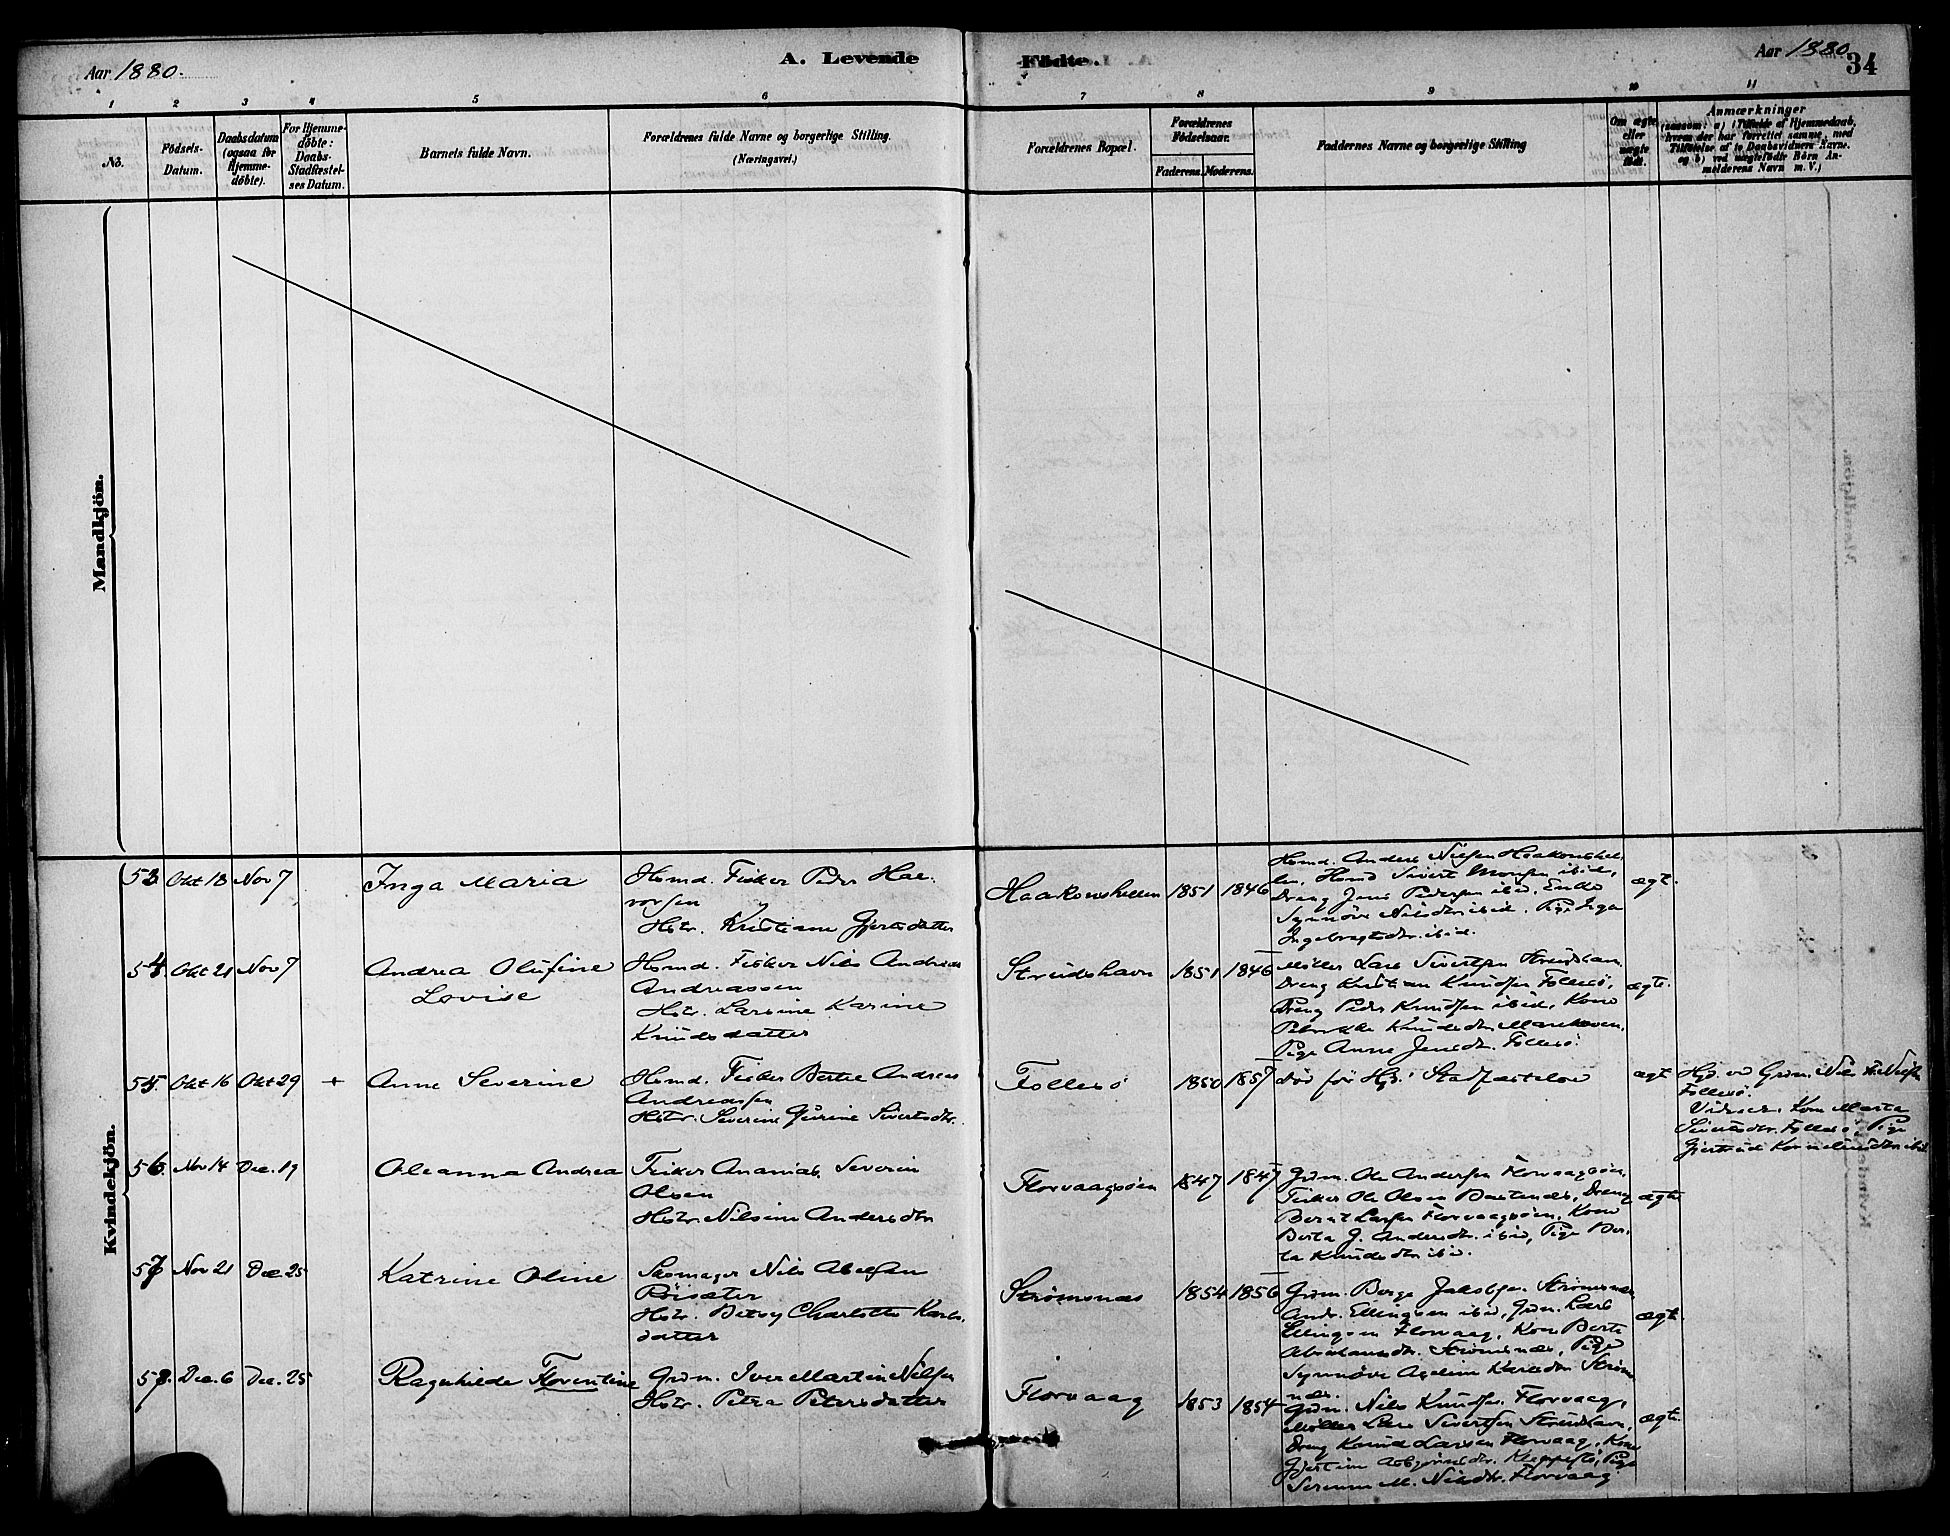 Aar 1880.
A. Levende Fødte.
Aar 1880
34
1 2 3 4 5 6 7 8 9 10 11
No.
Fødsels-
Datum.
Daabsdatum
(ogsaa for
Hjemme-
døbte).
For Hjemme-
døbte:
Daabs-
Stadfæstel-
ses Datum.
Barnets fulde Navn.
Forældrenes fulde Navne og borgerlige Stilling.
(Næringsvei.)
Forældrenes Bopæl.
Forældrenes
Fødselsaar.
Faderens. Moderens.
Faddernes Navne og borgerlige Stilling
Om ægte
eller
uægte
født.
Anmærkninger
(saasom: a) i Tilfælde af Hjemmedaab,
hvem der har forrettet samme, med
Tilføielse af to Daabsvidners Navne.
og b) ved uægtefødte Børn An-
melderens Navn m. V.)
Mandkjön.
Kvindekjön.
53 Okt 13 Nov 7
Inga Maria
Hsmd. Fisker Peder Hal-
vorsen
Hstr. Kristiane Gjertsdatter
Haakonshellen
1851 1846
Hsmd. Anders Nilsen Haakonshel-
len, Hsmd Sivert Monsen ibid,
Dreng Jens Pedersen ibid, Enke
Synnöve Nilsdtr ibid. Pige Inga
Ingebrigtsdtr ibid.
ægt.
54 Okt 21 Nov 7
Andrea Olufine
Lovise
Hsmd. Fisker Nils Andreas
Andreassen
Hstr. Larsine Karine
Knudsdatter
Strudshavn
1851 1846
Møller Lars Sivertsen Strudshavn,
Dreng Kristian Knudsen Follesö,
Dreng Peder Knudsen ibid, Kone
Knudsdtr
Pige Anna Jensdtr. Follesö.
ægte.
55. Okt 16 Okt 29 +
Anne Severine
Hsmd. Fisker Bertel Andreas
Andreassen
Hstr. Severine Gurine Sivertsdtr.
Follesö
1850 1857
död för Hjd.' Stadfæstelse
ægt
Hjd. ved Grdm. Nils Nilsen
Follesö.
Vidner. Kone Marta
Sivertsdtr. Follesö, Pige
Gjertrud Korneliusdtr ibid
56. Nov 14 Dec. 19
Oleanna Andrea
Fisker Ananias Severin
Olsen
Hstr. Nilsine Andersdtr
Florvaagsöen
1847 1847
Grdm. Ole Andersen Florvaagsöen,
Fisker Ole Olsen, Dreng
Bernt Larsen Florvaagsöen, Kone
Berta J. Andersdtr. ibid, Pige Ber-
ta Knudsdtr ibid.
ægte
57 Nov 21 Dec. 25
Katrine Oline
Skomager Nils Abelsen
Röisæter
Hstr. Betsy Charlotte Karls-
datter
Strömsnæs
1854 1856
Grdm. Berge Jakobsen Strömsnæs
Andr. Ellingsen ibid, Grdm. Lars
Ellingsen Florvaag, Kone Berte
Abrahamsdtr. Strömsnæs, Pige
Synnöve Karlsdtr Ström-
næs.
ægt.
58. Dec. 6 Dec. 25
Ragnhilde Florentine
Grdm. Iver Martin Nilsen
Hstr. Petra Petersdatter
Florvaag
1853 1854
Grdm. Nils Knudsen Florvaag,
Möller Lars Sivertsen Strudshavn,
Dreng Knud Larsen Florvaag, Kone
Asbjörnsdtr. Kleppestö, Pige
M. Nilsdtr. Florvaag
ægte.